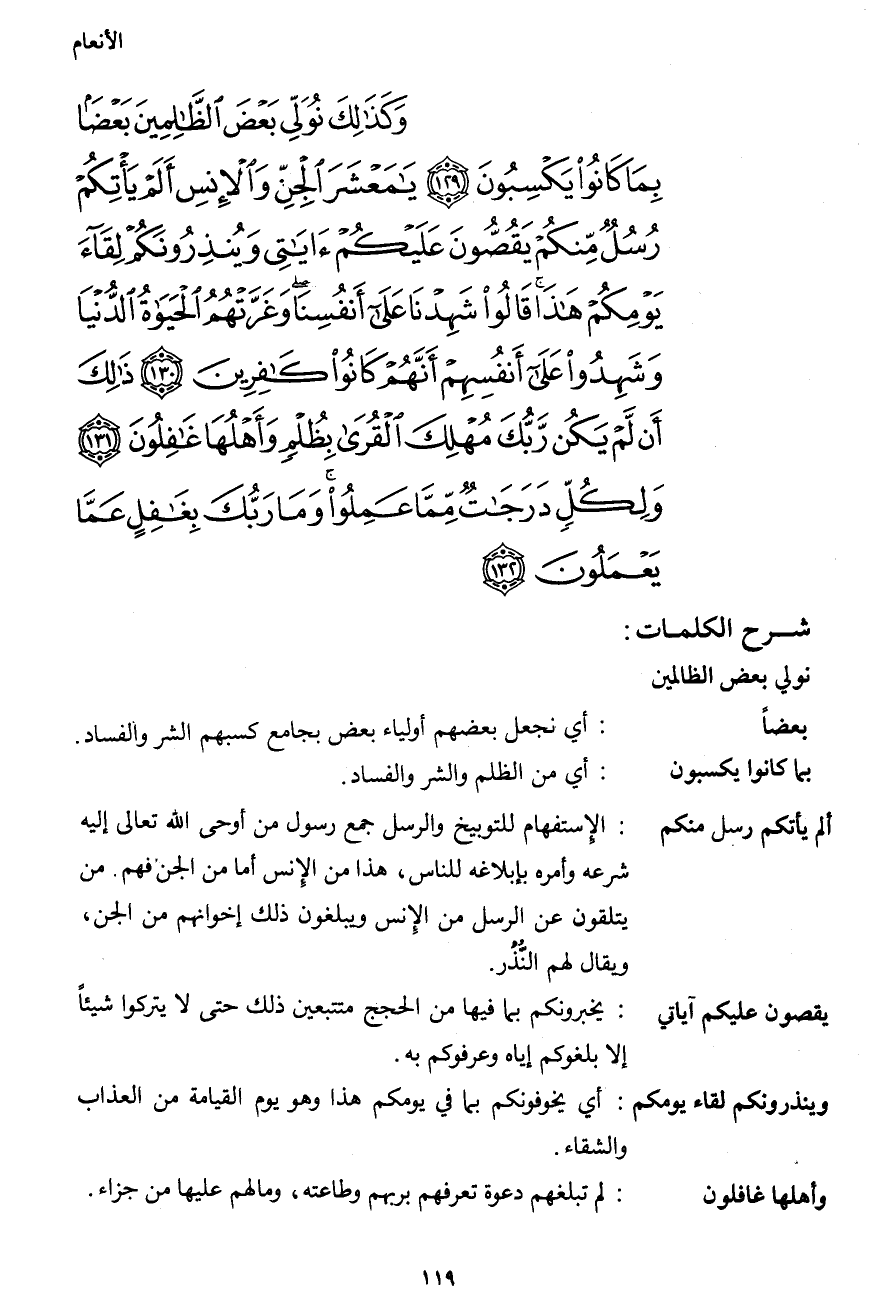 الأنعام
وَكَذَٰلِكَ نُوَلِّي بَعْضَ ٱلظَّٰلِمِينَ بَعْضَۢا
بِمَا كَانُوا۟ يَكْسِبُونَ ١٢٩ يَٰمَعْشَرَ ٱلْجِنِّ وَٱلْإِنسِ أَلَمْ يَأْتِكُمْ
رُسُلٌ مِّنكُمْ يَقُصُّونَ عَلَيْكُمْ ءَايَٰتِي وَيُنذِرُونَكُمْ لِقَآءَ
يَوْمِكُمْ هَٰذَا ۚ قَالُوا۟ شَهِدْنَا عَلَىٰٓ أَنفُسِنَا ۖ وَغَرَّتْهُمُ ٱلْحَيَوٰةُ ٱلدُّنْيَا
وَشَهِدُوا۟ عَلَىٰٓ أَنفُسِهِمْ أَنَّهُمْ كَانُوا۟ كَٰفِرِينَ ١٣٠ ذَٰلِكَ
أَن لَّمْ يَكُن رَّبُّكَ مُهْلِكَ ٱلْقُرَىٰ بِظُلْمٍ وَأَهْلُهَا غَٰفِلُونَ ١٣١
وَلِكُلٍّ دَرَجَٰتٌ مِّمَّا عَمِلُوا۟ ۚ وَمَا رَبُّكَ بِغَٰفِلٍ عَمَّا
يَعْمَلُونَ ١٣٢
شـــرح الكلمـات :
نولي بعض الظالمين
بعضاً : أي نجعل بعضهم أولياء بعض بجامع كسبهم الشر والفساد.
بما كانوا يكسبون : أي من الظلم والشر والفساد.
ألم يأتكم رسل منكم : الإستفهام للتوبيخ والرسل جمع رسول من أوحى الله تعالى إليه
شرعه وأمره بإبلاغه للناس، هذا من الإنس أما من الجن فهم. من
يتلقون عن الرسل من الإنس ويبلغون ذلك إخوانهم من الجن،
ويقال لهم النُّذُر.
يقصون عليكم آياتي : يخبرونكم بما فيها من الحجج متتبعين ذلك حتى لا يتركوا شيئاً
إلا بلغوكم إياه وعرفوكم به.
وينذرونكم لقاء يومكم : أي يخوفونكم بما في يومكم هذا وهو يوم القيامة من العذاب
والشقاء.
وأهلها غافلون : لم تبلغهم دعوة تعرفهم بربهم وطاعته، ومالهم عليها من جزاء.
١١٩